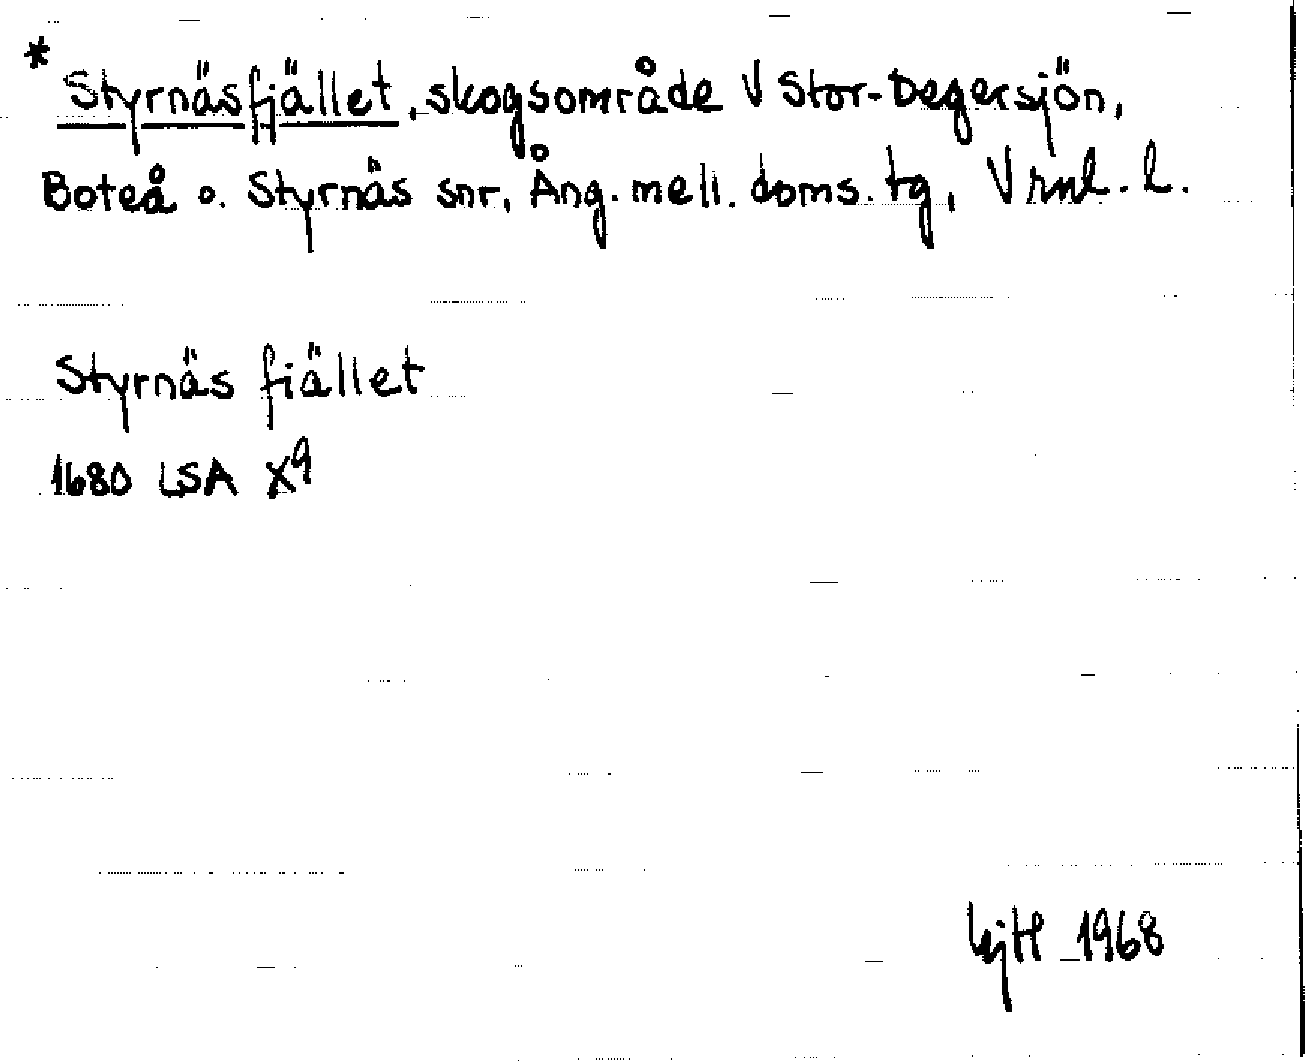 * Styrnäsfjället, skogsområde V Stor-Degersjön,
Boteå o. Styrnäs snr, Ång. mell. doms. tg, Vrnl. l.
Styrnäs fiället
1680 LSA X9
1968